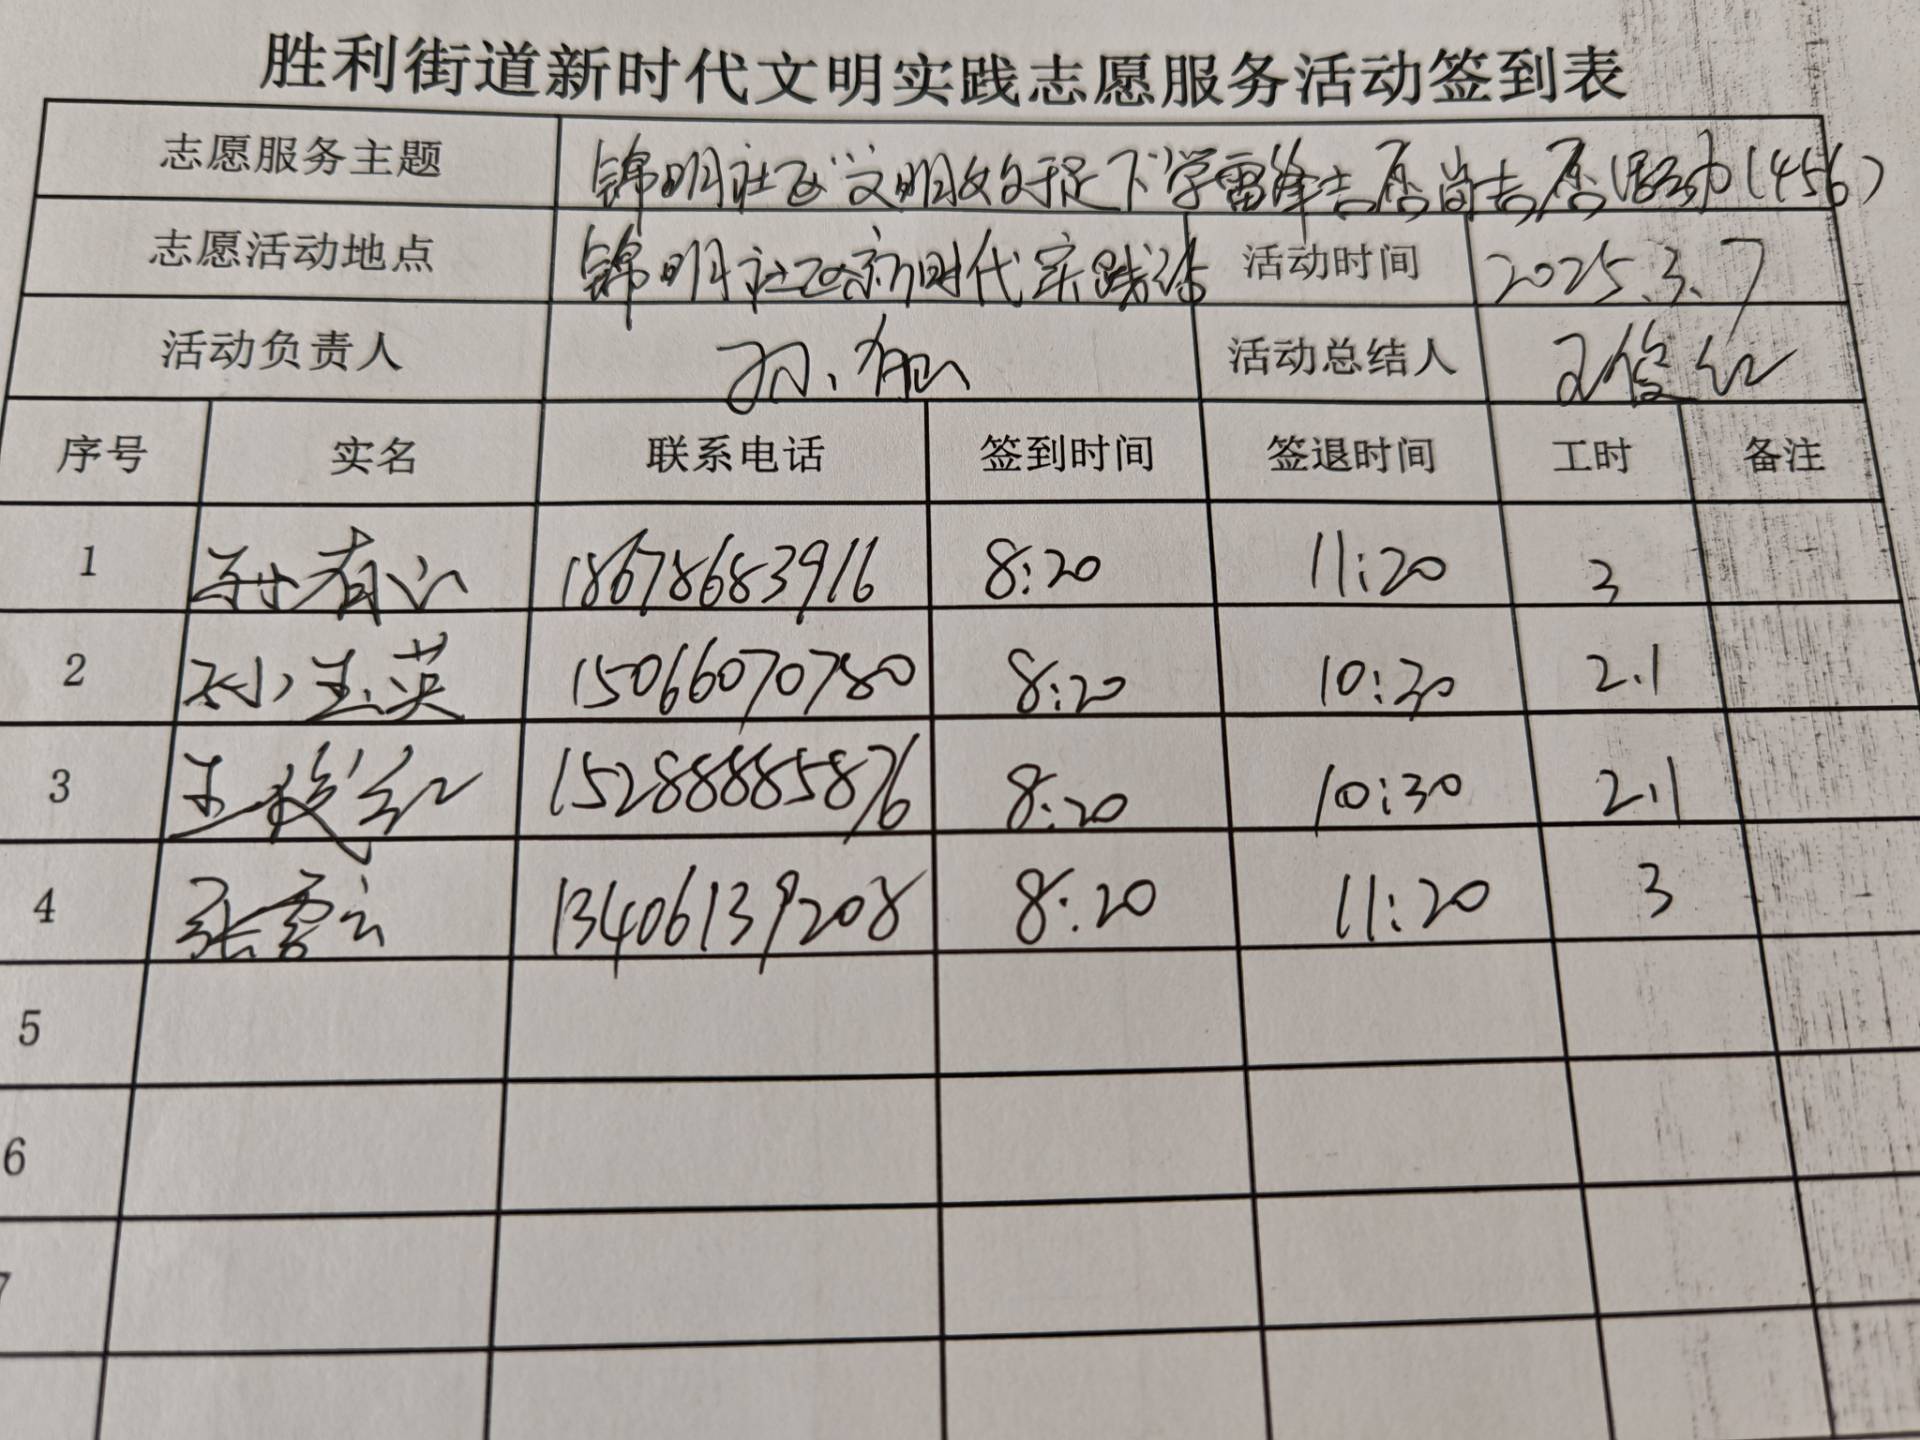 胜利街道新时代文明实践志愿服务活动签到表
志愿服务主题 锦明社区"文明始于足下"学雷锋志愿尚志愿活动(456)
志愿活动地点 锦明社区新时代实践站 活动时间 2025.3.7
活动负责人 孙有 活动总结人 王俊红
序号 实名 联系电话 签到时间 签退时间 工时 备注
1 孙有 18678683916 8:20 11:20 3
2 孙玉英 15066070780 8:20 10:30 2.1
3 王俊红 15288885876 8:20 10:30 2.1
4 张雪云 13406139208 8:20 11:20 3
5
6
7